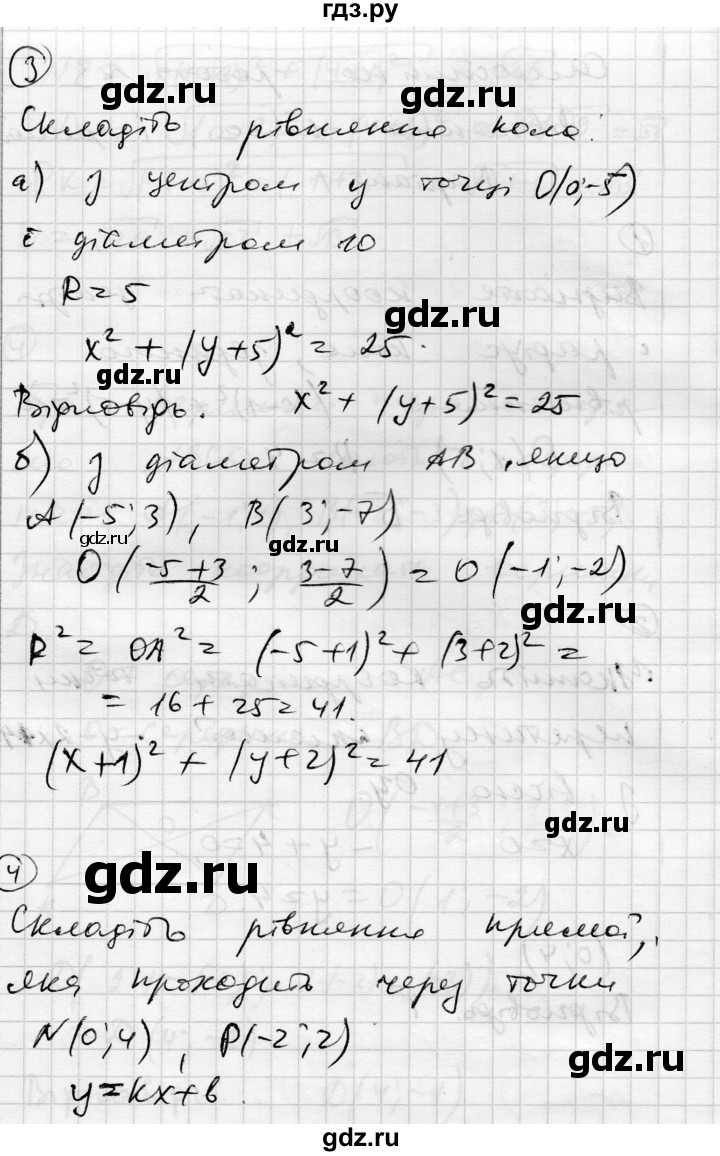 гдз.ру
3
gdz.ru
Складіть рівняння кола:
а) з центром у точці O(0;-5)
і діаметром 10
R = 5
gdz.ru
x² + (y+5)² = 25.
gdz.ru
Відповідь. x² + (y+5)² = 25
б) з діаметром AB, якщо
A(-5;3), B(3;-7)
gdz.ru
gdz.ru
O((-5+3)/2; (3-7)/2) = O(-1;-2)
gdz.ru
R² = OA² = (-5+1)² + (3+2)² =
= 16 + 25 = 41.
(x+1)² + (y+2)² = 41
gdz.ru
4
gdz.ru
Складіть рівняння прямої,
яка проходить через точки
N(0;4), P(-2;2)
gdz.ru
y = kx + b
gdz.ru